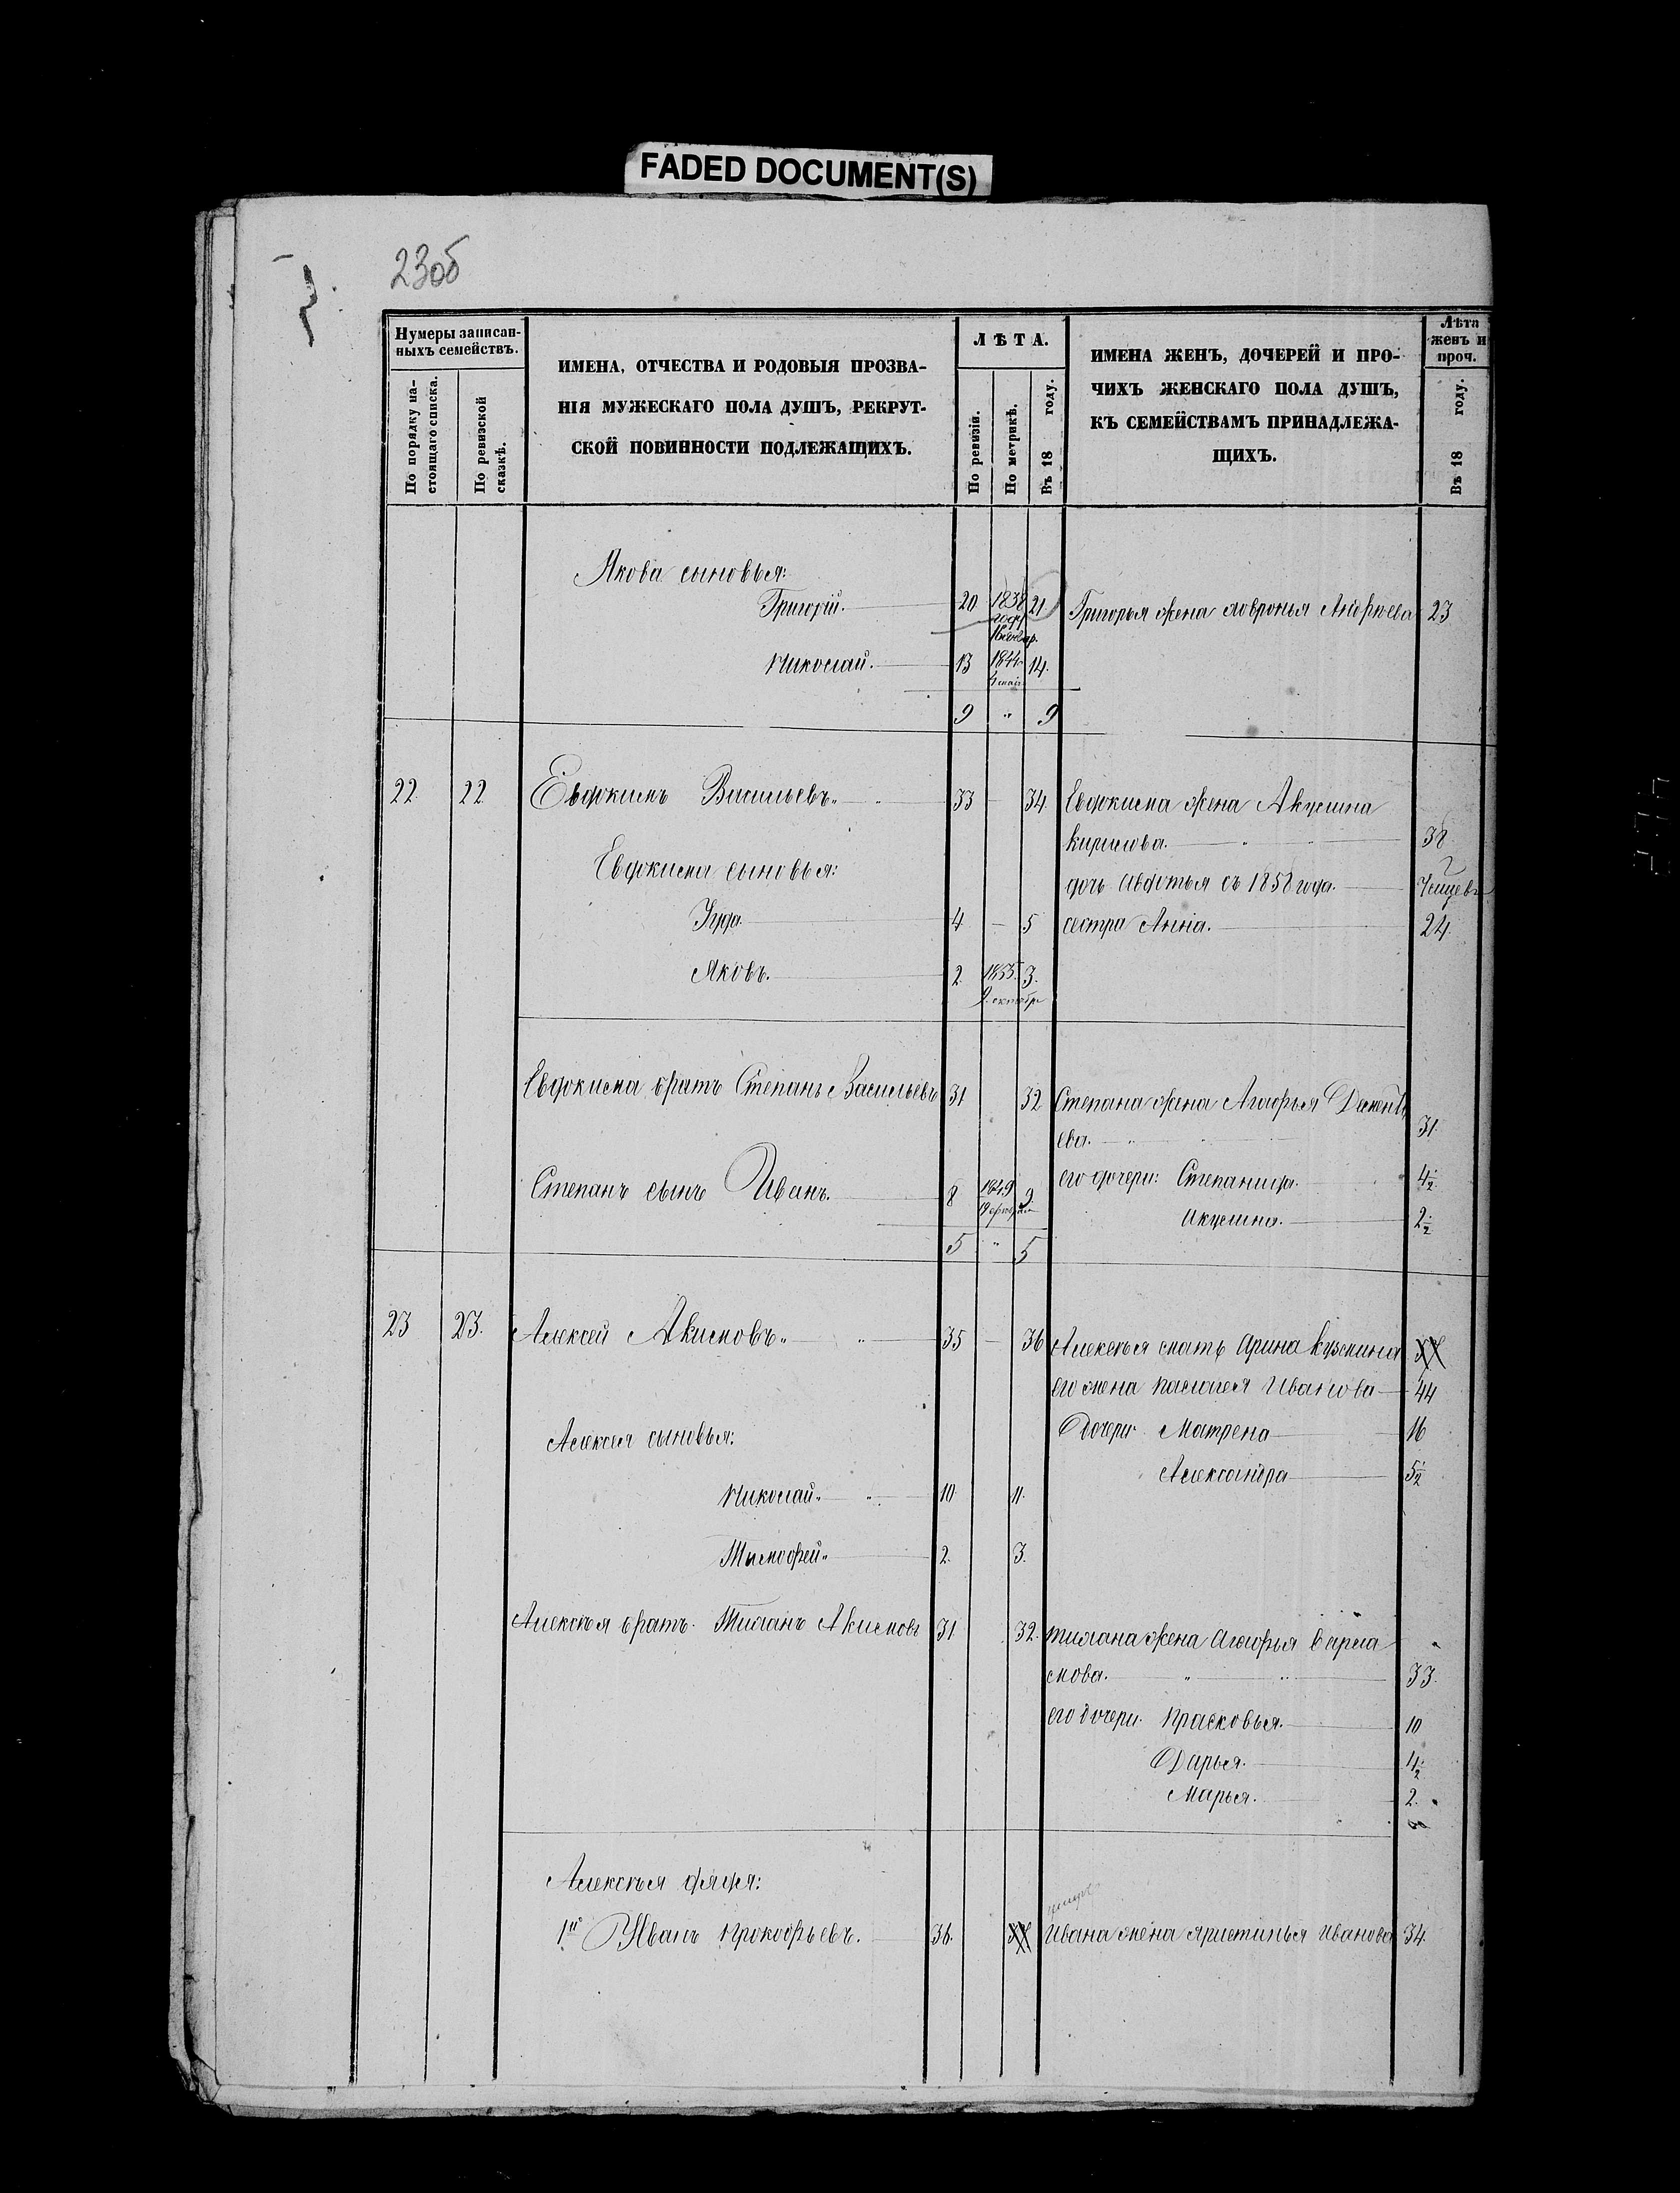 FADED DOCUMENT(S)
23об
Нумеры записан-
ныхъ семействъ.
По порядку на-
стоящаго списка.
По ревизской
сказкѣ.
ИМЕНА, ОТЧЕСТВА И РОДОВЫЯ ПРОЗВА-
НІЯ МУЖЕСКАГО ПОЛА ДУШЪ, РЕКРУТ-
СКОЙ ПОВИННОСТИ ПОДЛЕЖАЩИХЪ.
ЛѢТА.
По ревизіи.
По метрикѣ.
Въ 18 году.
ИМЕНА ЖЕНЪ, ДОЧЕРЕЙ И ПРО-
ЧИХЪ ЖЕНСКАГО ПОЛА ДУШЪ,
КЪ СЕМЕЙСТВАМЪ ПРИНАДЛЕЖА-
ЩИХЪ.
Лѣта
женъ и
проч.
Въ 18 году.
Якова сыновья:
Григорій. 20 1838 21 Григорья жена Андреева 23
году
Николай. 13 1844 14.
9 " 9
22 22 Евдокимъ Васильевъ. 33 — 34 Евдокима жена Акулина
Кирилова. 38
Евдокима сыновья: дочь Авдотья съ 1858 года.
Іуда 4 — 5 сестра Анна. 24
Яковъ. 2. 1855 3.
октебр
Евдокима братъ Степанъ Васильевъ 31 32 Степана жена Агафья Дементь
ева. 31.
Степанъ сынъ Иванъ. 8 1849 9 его дочери: Степанида. 4½
19 Акулина. 2½
5 " 5
23 23. Алексей Акимовъ 35 — 36 Алексѣя мать Арина Кузмина
его жена Палагея Иванова 44
Алексѣя сыновья: Дочери Матрена 16
Александра 5½
Николай 10 11.
Тимофей 2. 3.
Алексѣя братъ. Тиханъ Акимовъ 31 32. Тихана жена Агафья Варла
мова. 33.
его дочери. Прасковья. 10
Дарья. 4½
Марья. 2.
Алексѣя дядя:
1й Иванъ Прокофьевъ. 36. Ивана жена Иванова 34.